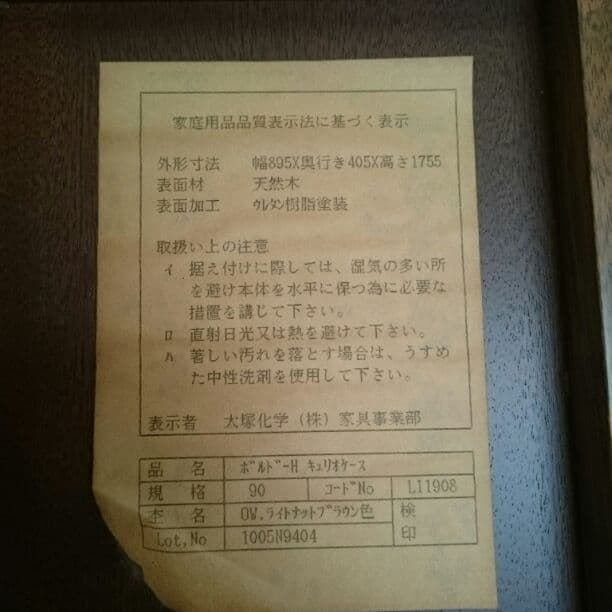 家庭用品品質表示法に基づく表示
外形寸法 幅895X奥行き405X高さ1755
表面材 天然木
表面加工 ｳﾚﾀﾝ樹脂塗装
取扱い上の注意
ｲ 据え付けに際しては、湿気の多い所
を避け本体を水平に保つ為に必要な
措置を講じて下さい。
ﾛ 直射日光又は熱を避けて下さい。
ﾊ 著しい汚れを落とす場合は、うすめ
た中性洗剤を使用して下さい。
表示者 大塚化学（株）家具事業部
品名 ﾎﾞﾙﾄﾞｰH ｷｭﾘｵｹｰｽ
規格 90 ｺｰﾄﾞNo L11908
本名 OW,ﾗｲﾄﾅｯﾄﾌﾞﾗｳﾝ色 検
Lot,No 1005N9404 印